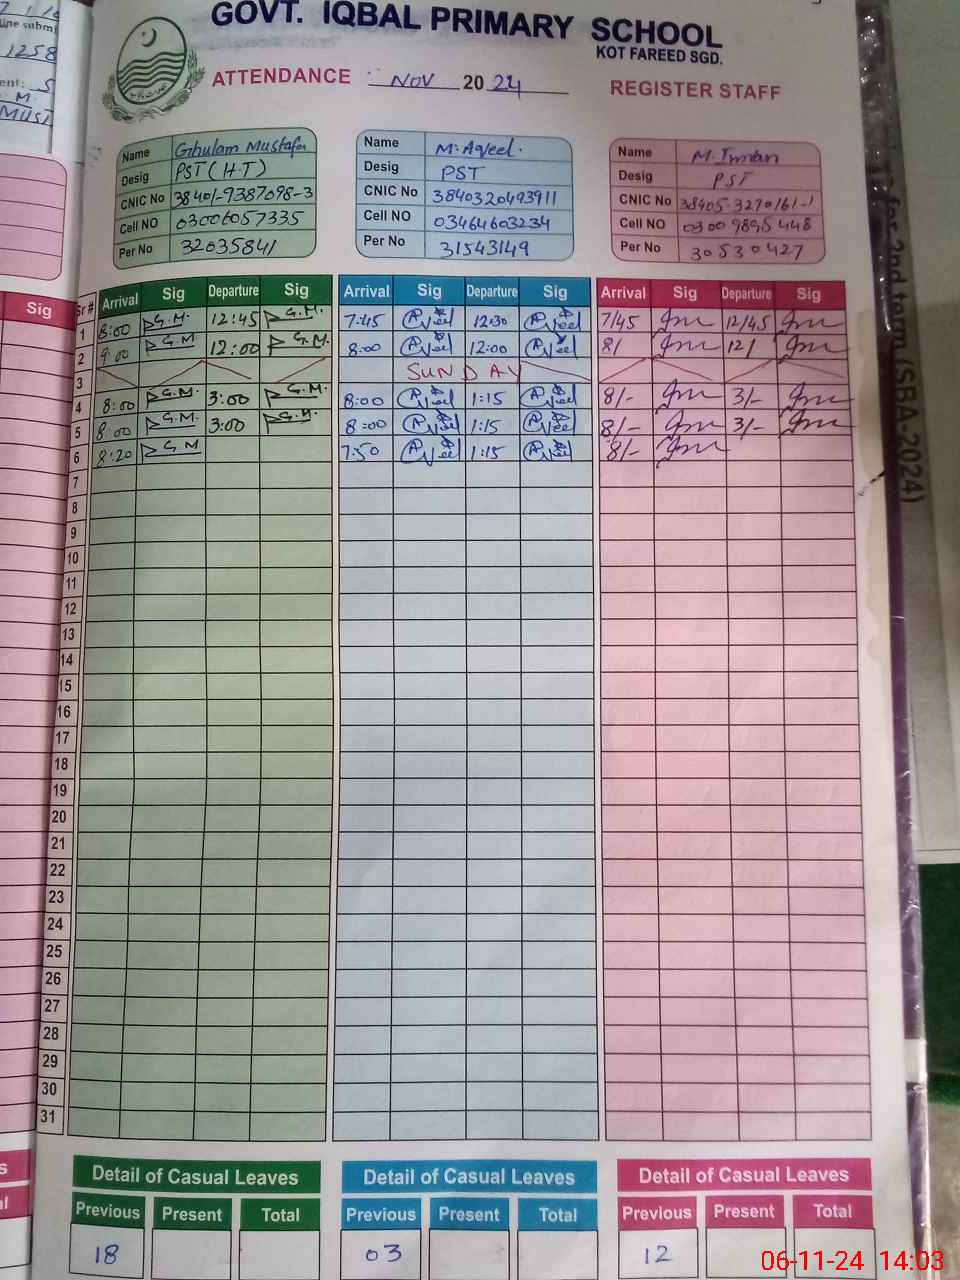 line submi
1258
ent: 5
M.
MUST
GOVT. IQBAL PRIMARY SCHOOL
KOT FAREED SGD.
ATTENDANCE NOV 2024 REGISTER STAFF
Name Ghulam Mustafa
Desig PST (H.T)
CNIC No 38401-9387098-3
Cell NO 03006057335
Per No 32035841
Name M. Aqeel.
Desig PST
CNIC No 3840320493911
Cell NO 03464603234
Per No 31543149
Name M. Imran
Desig PST
CNIC No 38405-3270161-1
Cell NO 0300 9895448
Per No 30530427
Sig
Sr # Arrival Sig Departure Sig Arrival Sig Departure Sig Arrival Sig Departure Sig
1 8:00 G.M. 12:45 G.M. 7:45 Aqeel 12:30 Aqeel 7/45 Im 12/45 Im
2 9:00 G.M. 12:00 G.M. 8:00 Aqeel 12:00 Aqeel 8/ Im 12/ Im
3 SUNDAY
4 8:00 G.M. 3:00 G.M. 8:00 Aqeel 1:15 Aqeel 8/- Im 3/- Im
5 8:00 G.M. 3:00 G.M. 8:00 Aqeel 1:15 Aqeel 8/- Im 3/- Im
6 8:20 G.M 7:50 Aqeel 1:15 Aqeel 8/- Im
7
8
9
10
11
12
13
14
15
16
17
18
19
20
21
22
23
24
25
26
27
28
29
30
31
Detail of Casual Leaves Detail of Casual Leaves Detail of Casual Leaves
Previous Present Total Previous Present Total Previous Present Total
18 03 12
for 2nd term (SBA-2024)
06-11-24 14:03